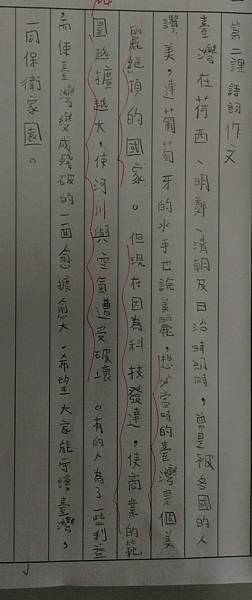 第二課語詞作文
臺灣在荷西、明鄭、清朝及日治時期時，曾是被各國的人
讚美，連葡萄牙的水手也說美麗，想必當時的臺灣是個美
麗絕頂的國家。但現在因為科技發達，使商業的範
圍越擴越大，使河川與空氣遭受破壞。有的人為了一些利益
而使臺灣變成殘破的一面愈擴愈大。希望大家能守護臺灣，
一同保衛家園。